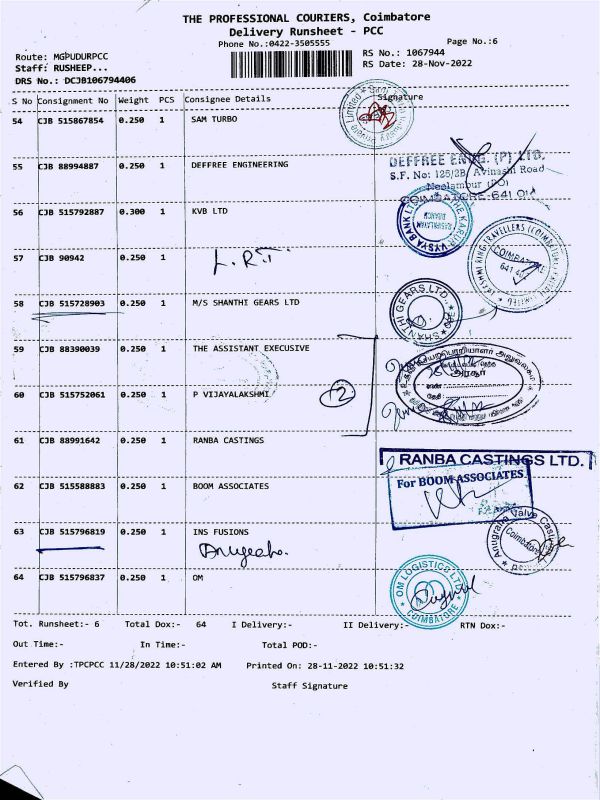 THE PROFESSIONAL COURIERS, Coimbatore
Delivery Runsheet - PCC
Phone No.:0422-3505555
Page No.:6
Route: MGPUDURPCC
RS No.: 1067944
Staff: RUSHEEP...
RS Date: 28-Nov-2022
DRS No.: DCJB106794406
S No Consignment No Weight PCS Consignee Details Signature
54 CJB 515867854 0.250 1 SAM TURBO
55 CJB 88994887 0.250 1 DEFFREE ENGINEERING
DEFFREE ENGG. (P) LTD.
S.F. No: 125/2B, Avinashi Road
Neelambur (PO)
COIMBATORE-641 014
56 CJB 515792887 0.300 1 KVB LTD
THE KARUR VYSYA BANK LTD
57 CJB 90942 0.250 1 L.R.T.
LAKSHMI RING TRAVELLERS (COIMBATORE)
COIMBATORE
58 CJB 515728903 0.250 1 M/S SHANTHI GEARS LTD
SHANTHI GEARS LTD.
59 CJB 88390039 0.250 1 THE ASSISTANT EXECUSIVE
அரசூர்
60 CJB 515752061 0.250 1 P VIJAYALAKSHMI
2
61 CJB 88991642 0.250 1 RANBA CASTINGS
RANBA CASTINGS LTD.
62 CJB 515588883 0.250 1 BOOM ASSOCIATES
For BOOM ASSOCIATES
63 CJB 515796819 0.250 1 INS FUSIONS
Anugraha Valve Castings
Coimbatore
64 CJB 515796837 0.250 1 OM
OM LOGISTICS LTD.
COIMBATORE
Tot. Runsheet:- 6 Total Dox:- 64 I Delivery:- II Delivery:- RTN Dox:-
Out Time:- In Time:- Total POD:-
Entered By :TPCPCC 11/28/2022 10:51:02 AM Printed On: 28-11-2022 10:51:32
Verified By Staff Signature